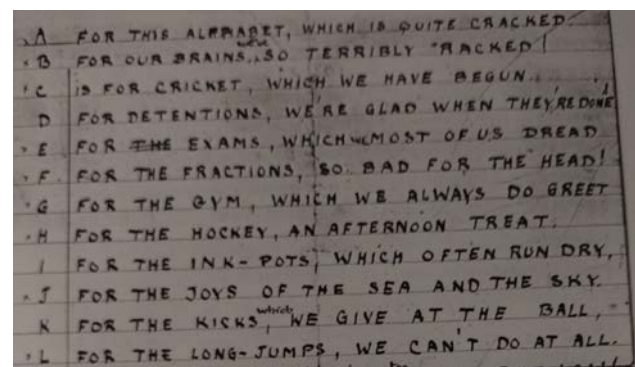 A FOR THIS ALPHABET, WHICH IS QUITE CRACKED.
B FOR OUR BRAINS, we've SO TERRIBLY RACKED!
C IS FOR CRICKET, WHICH WE HAVE BEGUN.
D FOR DETENTIONS, WE'RE GLAD WHEN THEY'RE DONE
E FOR THE EXAMS, WHICH MOST OF US DREAD
F. FOR THE FRACTIONS, SO BAD FOR THE HEAD!
G FOR THE GYM, WHICH WE ALWAYS DO GREET
H FOR THE HOCKEY, AN AFTERNOON TREAT.
I FOR THE INK-POTS, WHICH OFTEN RUN DRY,
J FOR THE JOYS OF THE SEA AND THE SKY.
K FOR THE KICKS, which WE GIVE AT THE BALL,
L FOR THE LONG-JUMPS, WE CAN'T DO AT ALL.